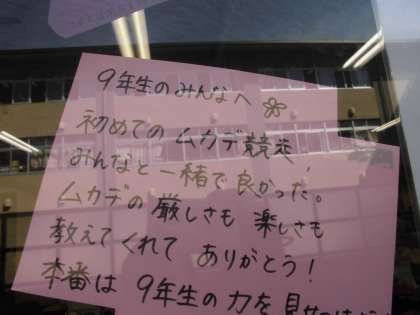 9年生のみんなへ
初めてのムカデ競走
みんなと一緒で良かった。
ムカデの厳しさも楽しさも
教えてくれてありがとう!
本番は9年生の力を見せつけ